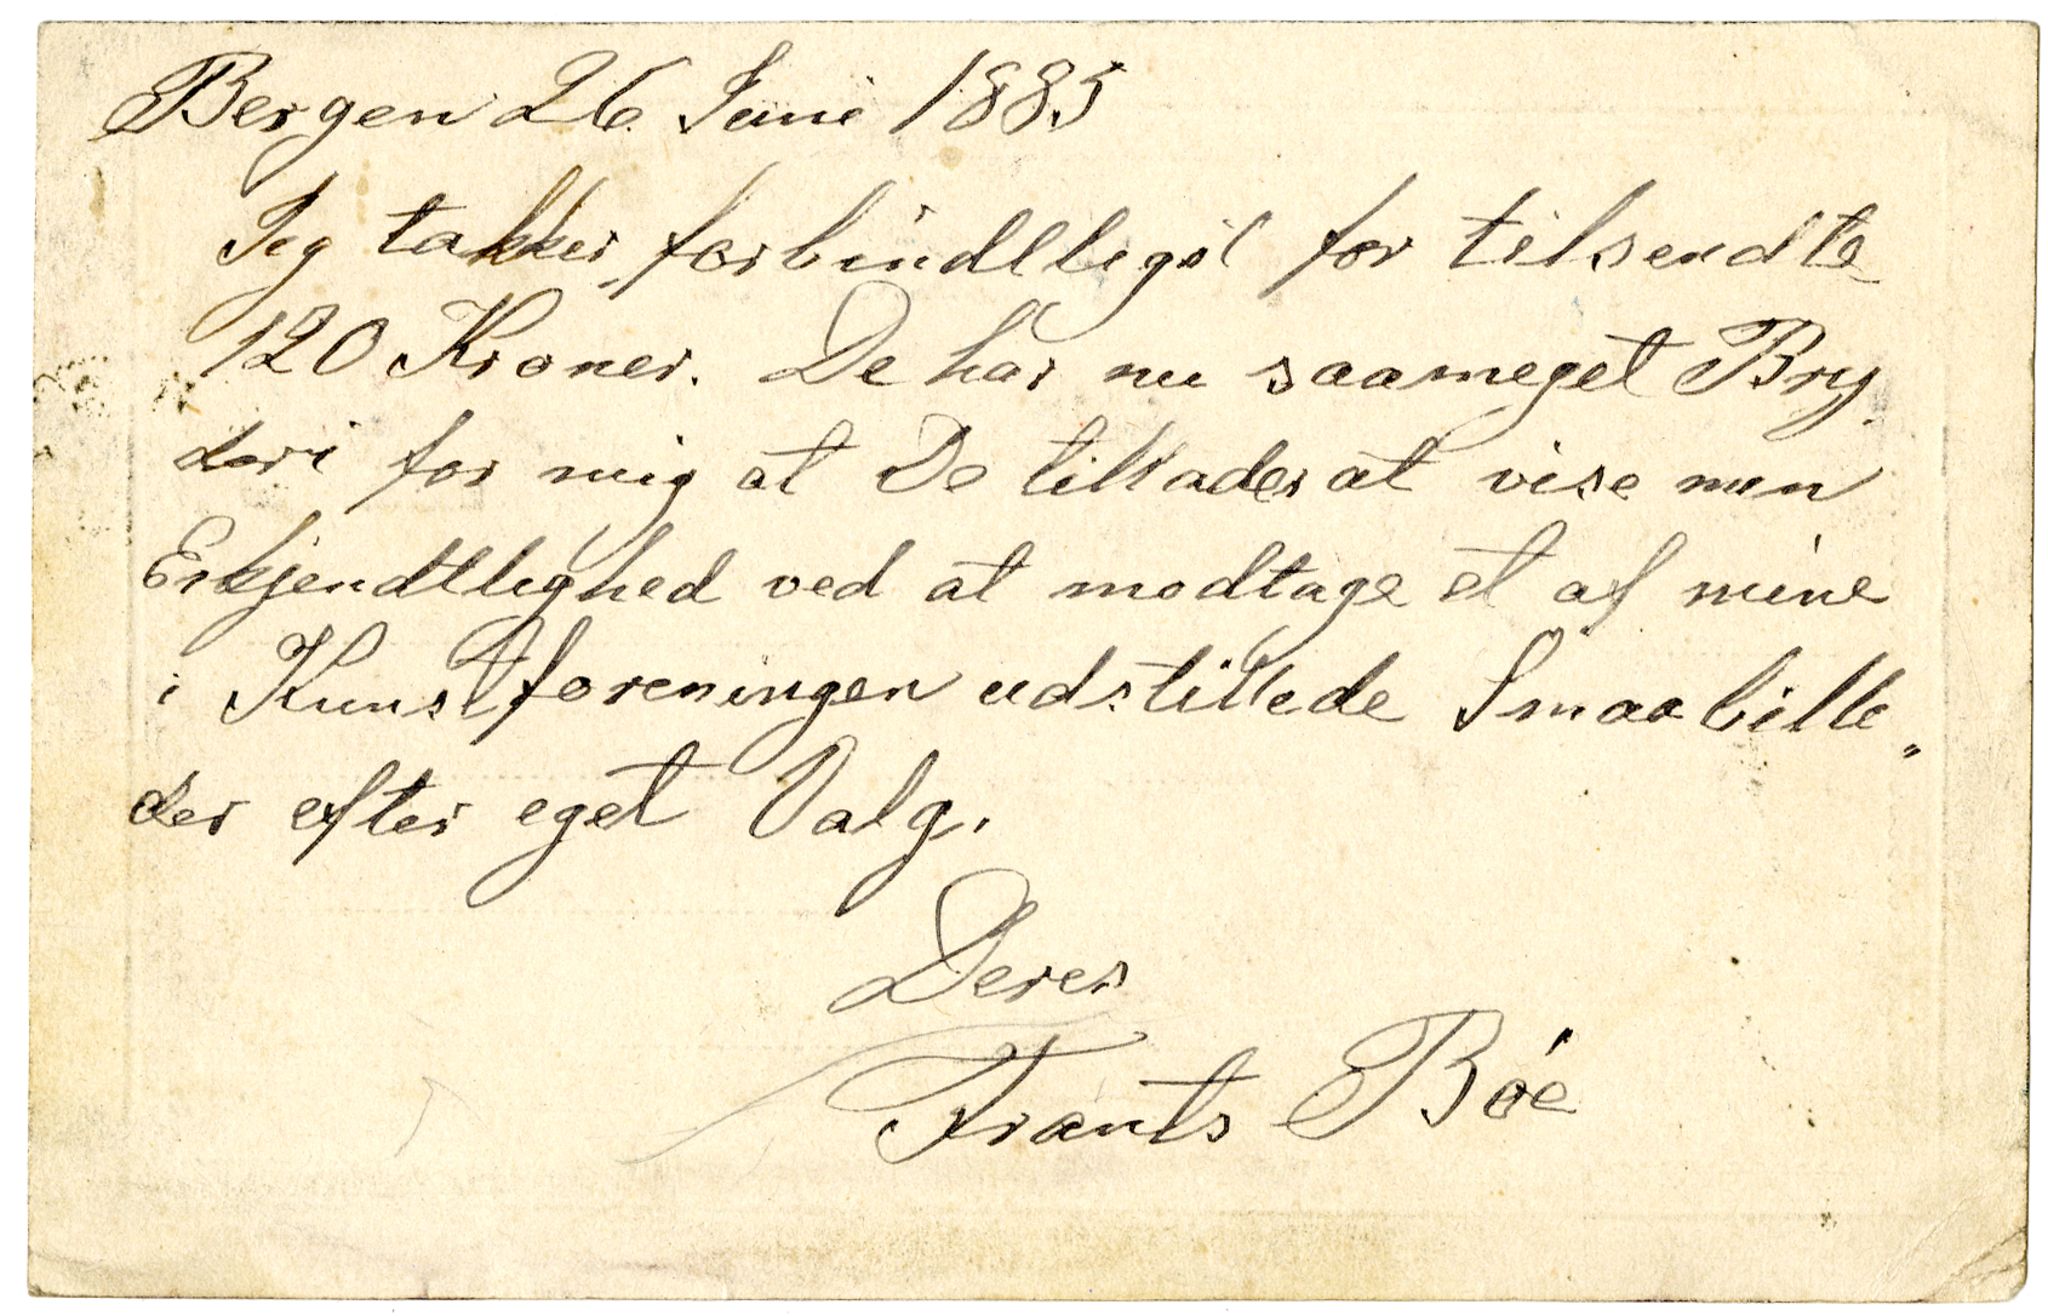 Bergen 26 Juni 1885
Jeg takker forbindtligst for tilsendte
120 Kroner. De har nu saameget Bry-
deri for mig at De tillader at vise min
Erkjendtlighed ved at modtage et af mine
i Kunstforeningen udstillede Smaabille„
der efter eget Valg.
Deres
Frants Bøe